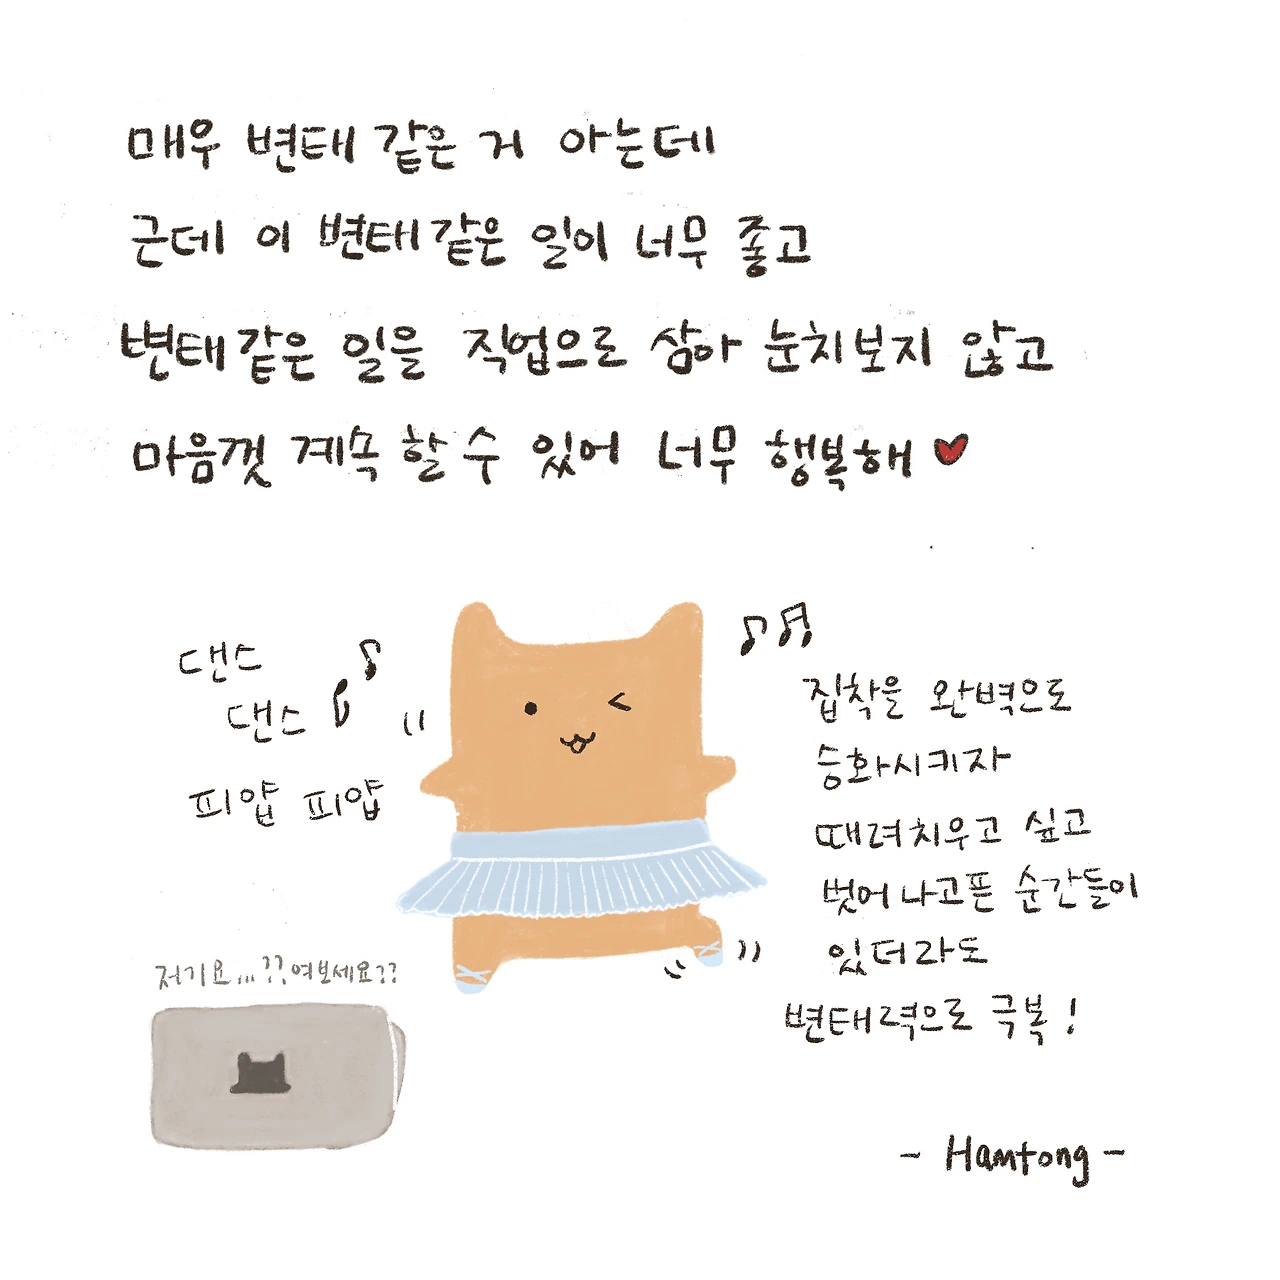 매우 변태 같은 거 아는데
근데 이 변태같은 일이 너무 좋고
변태같은 일을 직업으로 삼아 눈치보지 않고
마음껏 계속 할 수 있어 너무 행복해
댄스
댄스
피얍 피얍
집착을 완벽으로
승화시키자
때려치우고 싶고
벗어나고픈 순간들이
있더라도
변태력으로 극복!
저기요...??여보세요??
- Hamtong -